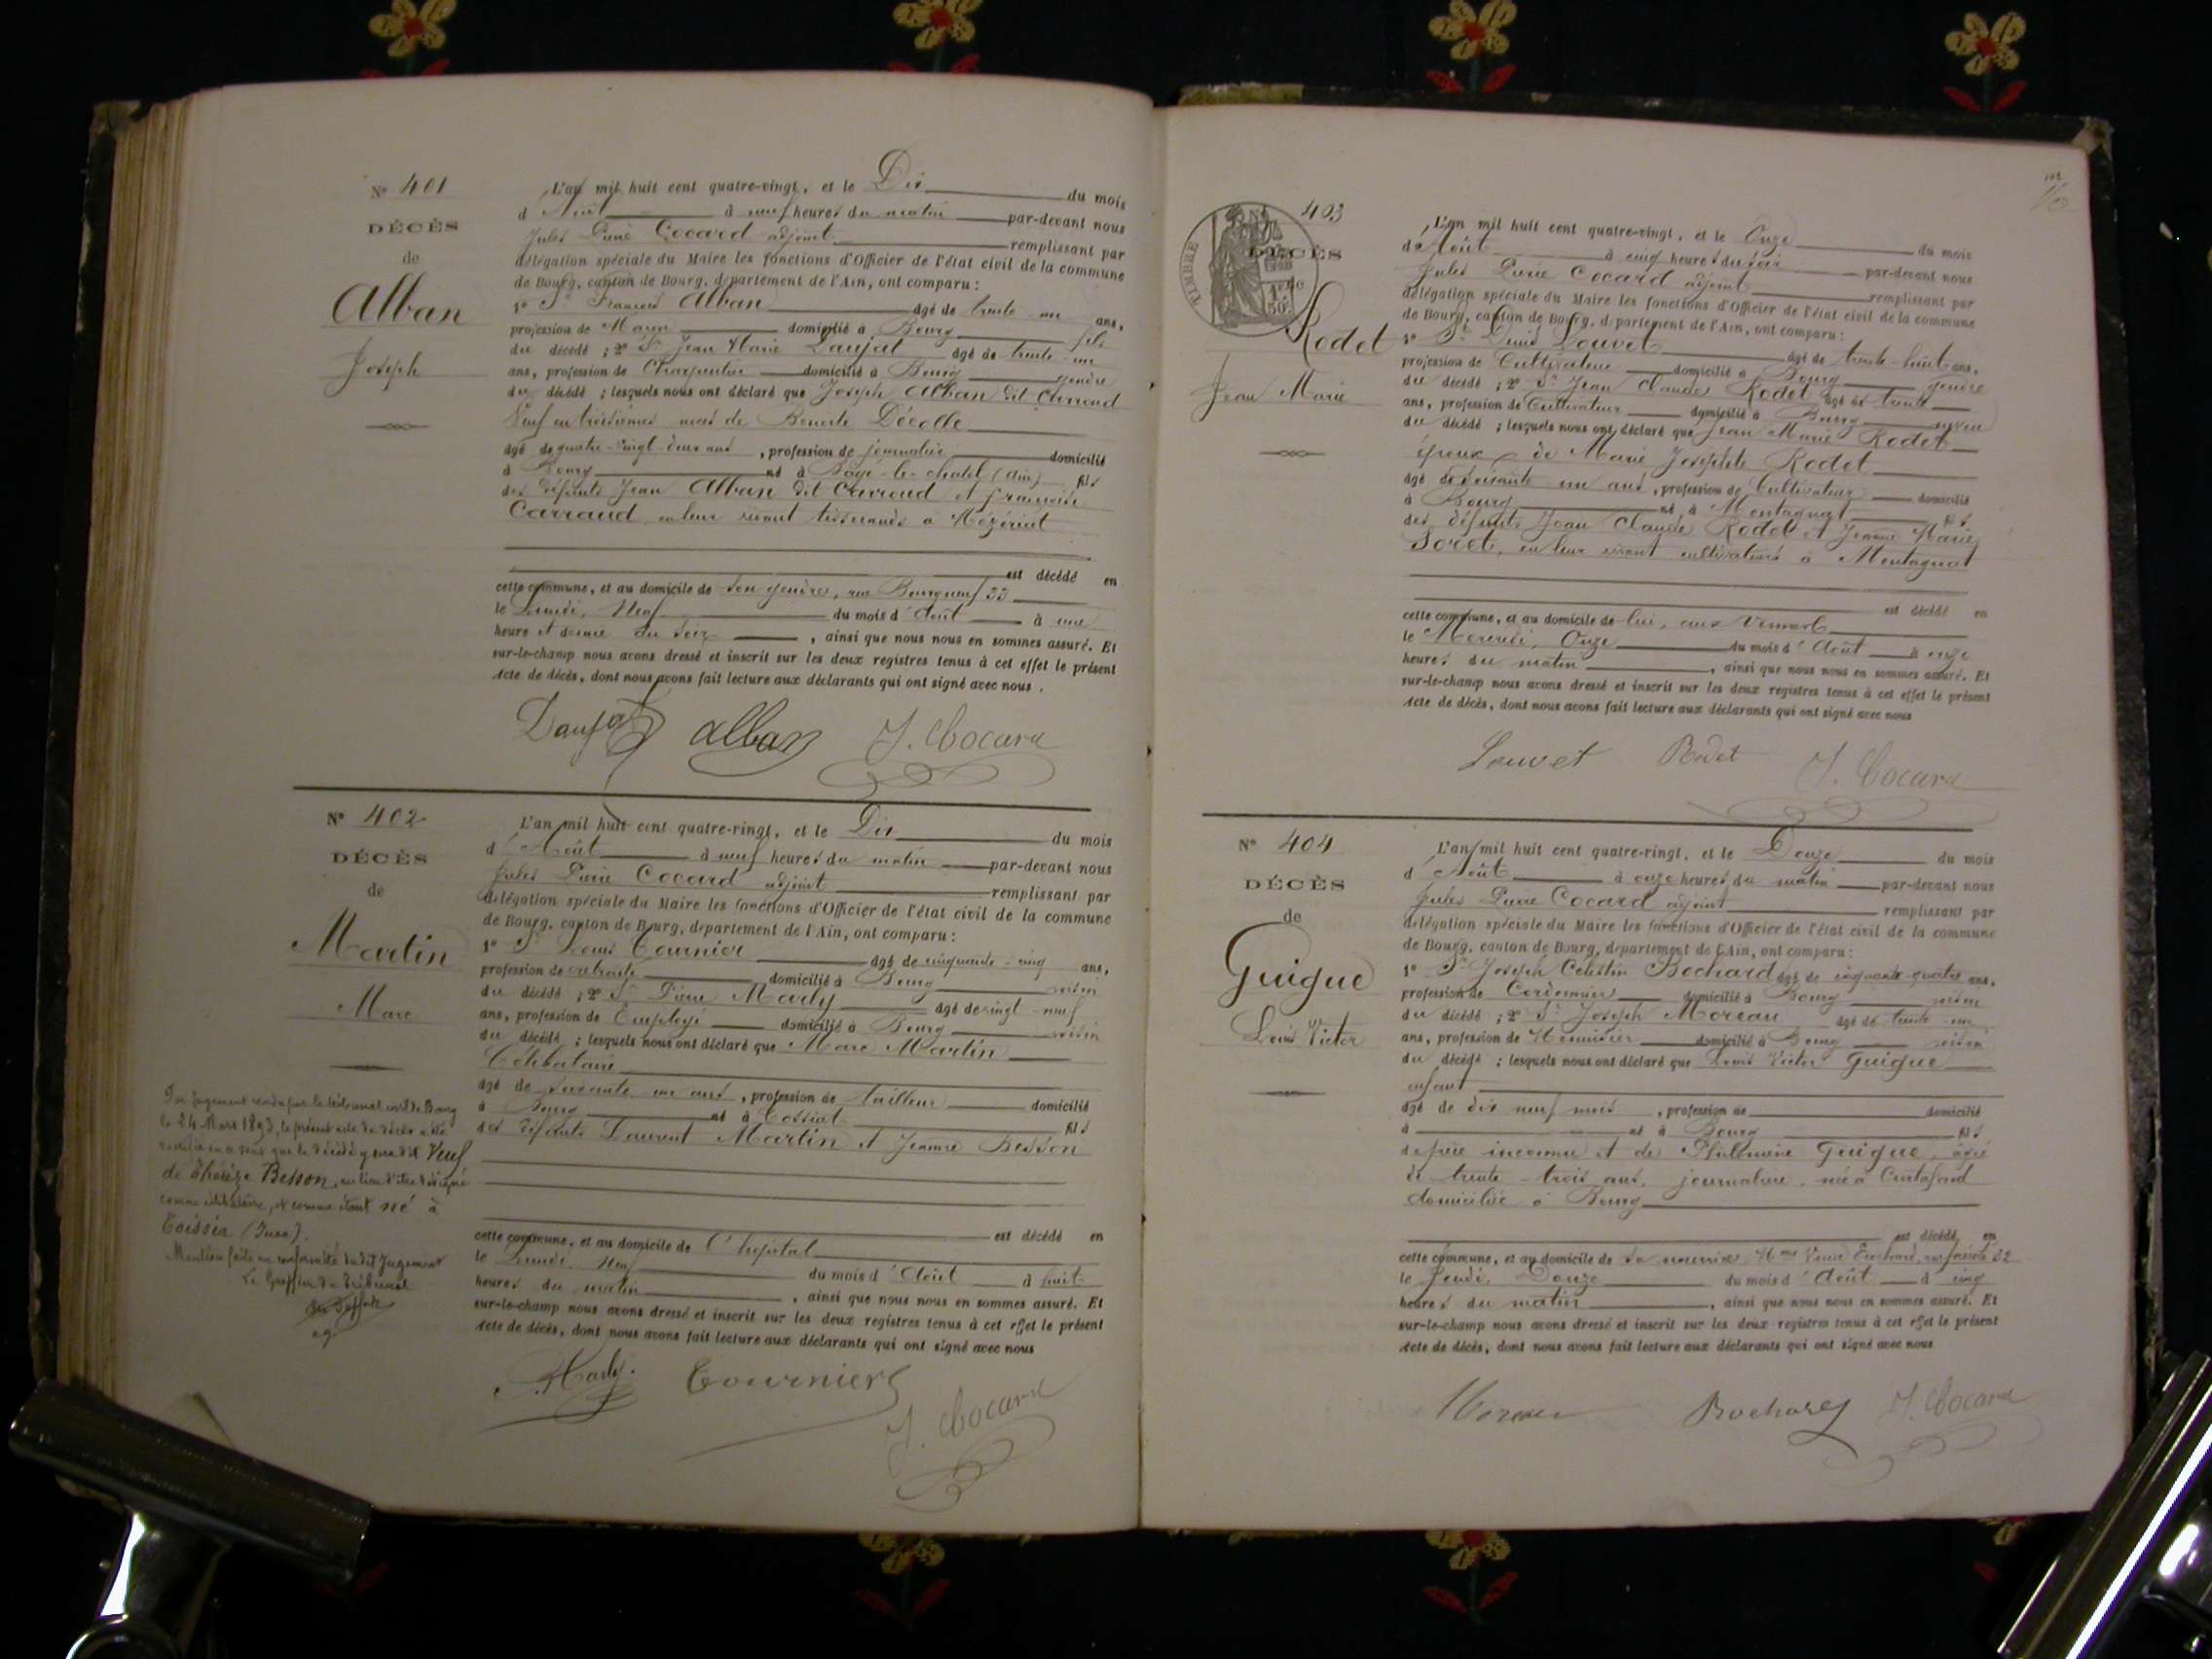 N° 401
DÉCÈS
de
Alban
Joseph
L'an mil huit cent quatre-vingt, et le Dix du mois
d'Août à neuf heures du matin par-devant nous
Jules Pierre Cocard adjoint remplissant par
délégation spéciale du Maire les fonctions d'Officier de l'état civil de la commune
de Bourg, canton de Bourg, département de l'Ain, ont comparu :
1° Sr François Alban âgé de trente un ans,
profession de Maçon domicilié à Bourg fils
du décédé ; 2° Sr Jean Marie Daujat âgé de trente-un
ans, profession de Charpentier domicilié à Bourg gendre
du décédé ; lesquels nous ont déclaré que Joseph Alban dit Carraud
Veuf en troisièmes noces de Benoite Décolle
âgé de quatre-vingt-deux ans, profession de journalier domicilié
à Bourg né à Bâgé-le-chatel (Ain) fils
des défunts Jean Alban dit Carraud et françoise
Carraud en leur vivant tisserands à Mézériat
est décédé en
cette commune, et au domicile de son gendre, rue Bourgneuf 33
le Lundi, Neuf du mois d'Août à une
heure et demie du soir, ainsi que nous nous en sommes assuré. Et
sur-le-champ nous avons dressé et inscrit sur les deux registres tenus à cet effet le présent
Acte de décès, dont nous avons fait lecture aux déclarants qui ont signé avec nous.
Daujat Alban J. Cocard
N° 402
DÉCÈS
de
Martin
Marc
L'an mil huit cent quatre-vingt, et le Dix du mois
d'Août à neuf heures du matin par-devant nous
Jules Pierre Cocard adjoint remplissant par
délégation spéciale du Maire les fonctions d'Officier de l'état civil de la commune
de Bourg, canton de Bourg, département de l'Ain, ont comparu :
1° Sr Louis Tournier âgé de cinquante-cinq ans,
profession de retraité domicilié à Bourg voisin
du décédé ; 2° Sr Pierre Marly âgé de vingt-neuf
ans, profession de Employé domicilié à Bourg voisin
du décédé ; lesquels nous ont déclaré que Marc Martin
Célibataire
âgé de soixante un ans, profession de tailleur domicilié
à Bourg né à Cossiat fils
des défunts Laurent Martin et Jeanne Besson
est décédé en
cette commune, et au domicile de l'hôpital
le Lundi, Neuf du mois d'Août à huit
heures du matin, ainsi que nous nous en sommes assuré. Et
sur-le-champ nous avons dressé et inscrit sur les deux registres tenus à cet effet le présent
Acte de décès, dont nous avons fait lecture aux déclarants qui ont signé avec nous
Par jugement rendu par le tribunal civil de Bourg
le 24 Mars 1893, le présent acte de décès a été
rectifié en ce sens que le décédé y sera dit Veuf
de Thérèze Besson, au lieu d'être désigné
comme célibataire, et comme étant né à
Coissia (Jura).
Mention faite en conformité dudit Jugement
Le Greffier du Tribunal
Marly. Tournier
J. Cocard
N° 403
TIMBRE
DÉCÈS
de
Rodet
Jean Marie
L'an mil huit cent quatre-vingt, et le Onze du mois
d'Août à cinq heures du soir par-devant nous
Jules Pierre Cocard adjoint remplissant par
délégation spéciale du Maire les fonctions d'Officier de l'état civil de la commune
de Bourg, canton de Bourg, département de l'Ain, ont comparu :
1° Sr Denis Louvet âgé de trente-huit ans,
profession de Cultivateur domicilié à Bourg gendre
du décédé ; 2° Sr Jean Claude Rodet âgé de trente
ans, profession de Cultivateur domicilié à Bourg neveu
du décédé ; lesquels nous ont déclaré que Jean Marie Rodet
époux de Marie Josephte Rodet
âgé de soixante un ans, profession de Cultivateur domicilié
à Bourg né à Montagnat fils
des défunts Jean Claude Rodet et Jeanne Marie
Soret, en leur vivant cultivateurs à Montagnat
est décédé en
cette commune, et au domicile de lui, aux Vennes
le Mercredi, Onze du mois d'Août à onze
heures du matin, ainsi que nous nous en sommes assuré. Et
sur-le-champ nous avons dressé et inscrit sur les deux registres tenus à cet effet le présent
Acte de décès, dont nous avons fait lecture aux déclarants qui ont signé avec nous
Louvet Rodet J. Cocard
N° 404
DÉCÈS
de
Guigue
Louis Victor
L'an mil huit cent quatre-vingt, et le Douze du mois
d'Août à onze heures du matin par-devant nous
Jules Pierre Cocard adjoint remplissant par
délégation spéciale du Maire les fonctions d'Officier de l'état civil de la commune
de Bourg, canton de Bourg, département de l'Ain, ont comparu :
1° Sr Joseph Célestin Bochard âgé de cinquante-quatre ans,
profession de Cordonnier domicilié à Bourg voisin
du décédé ; 2° Sr Joseph Moreau âgé de trente-un
ans, profession de Menuisier domicilié à Bourg voisin
du décédé ; lesquels nous ont déclaré que Louis Victor Guigue
enfant
âgé de dix neuf mois, profession de domicilié
à né à Bourg fils
de père inconnu et de Philomène Guigue, âgée
de trente-trois ans, journalière, née à Curtafond
domiciliée à Bourg
est décédé en
cette commune, et au domicile de sa nourrice, Mme Veuve 32
le Jeudi, Douze du mois d'Août à cinq
heures du matin, ainsi que nous nous en sommes assuré. Et
sur-le-champ nous avons dressé et inscrit sur les deux registres tenus à cet effet le présent
Acte de décès, dont nous avons fait lecture aux déclarants qui ont signé avec nous
Moreau Bochard J. Cocard